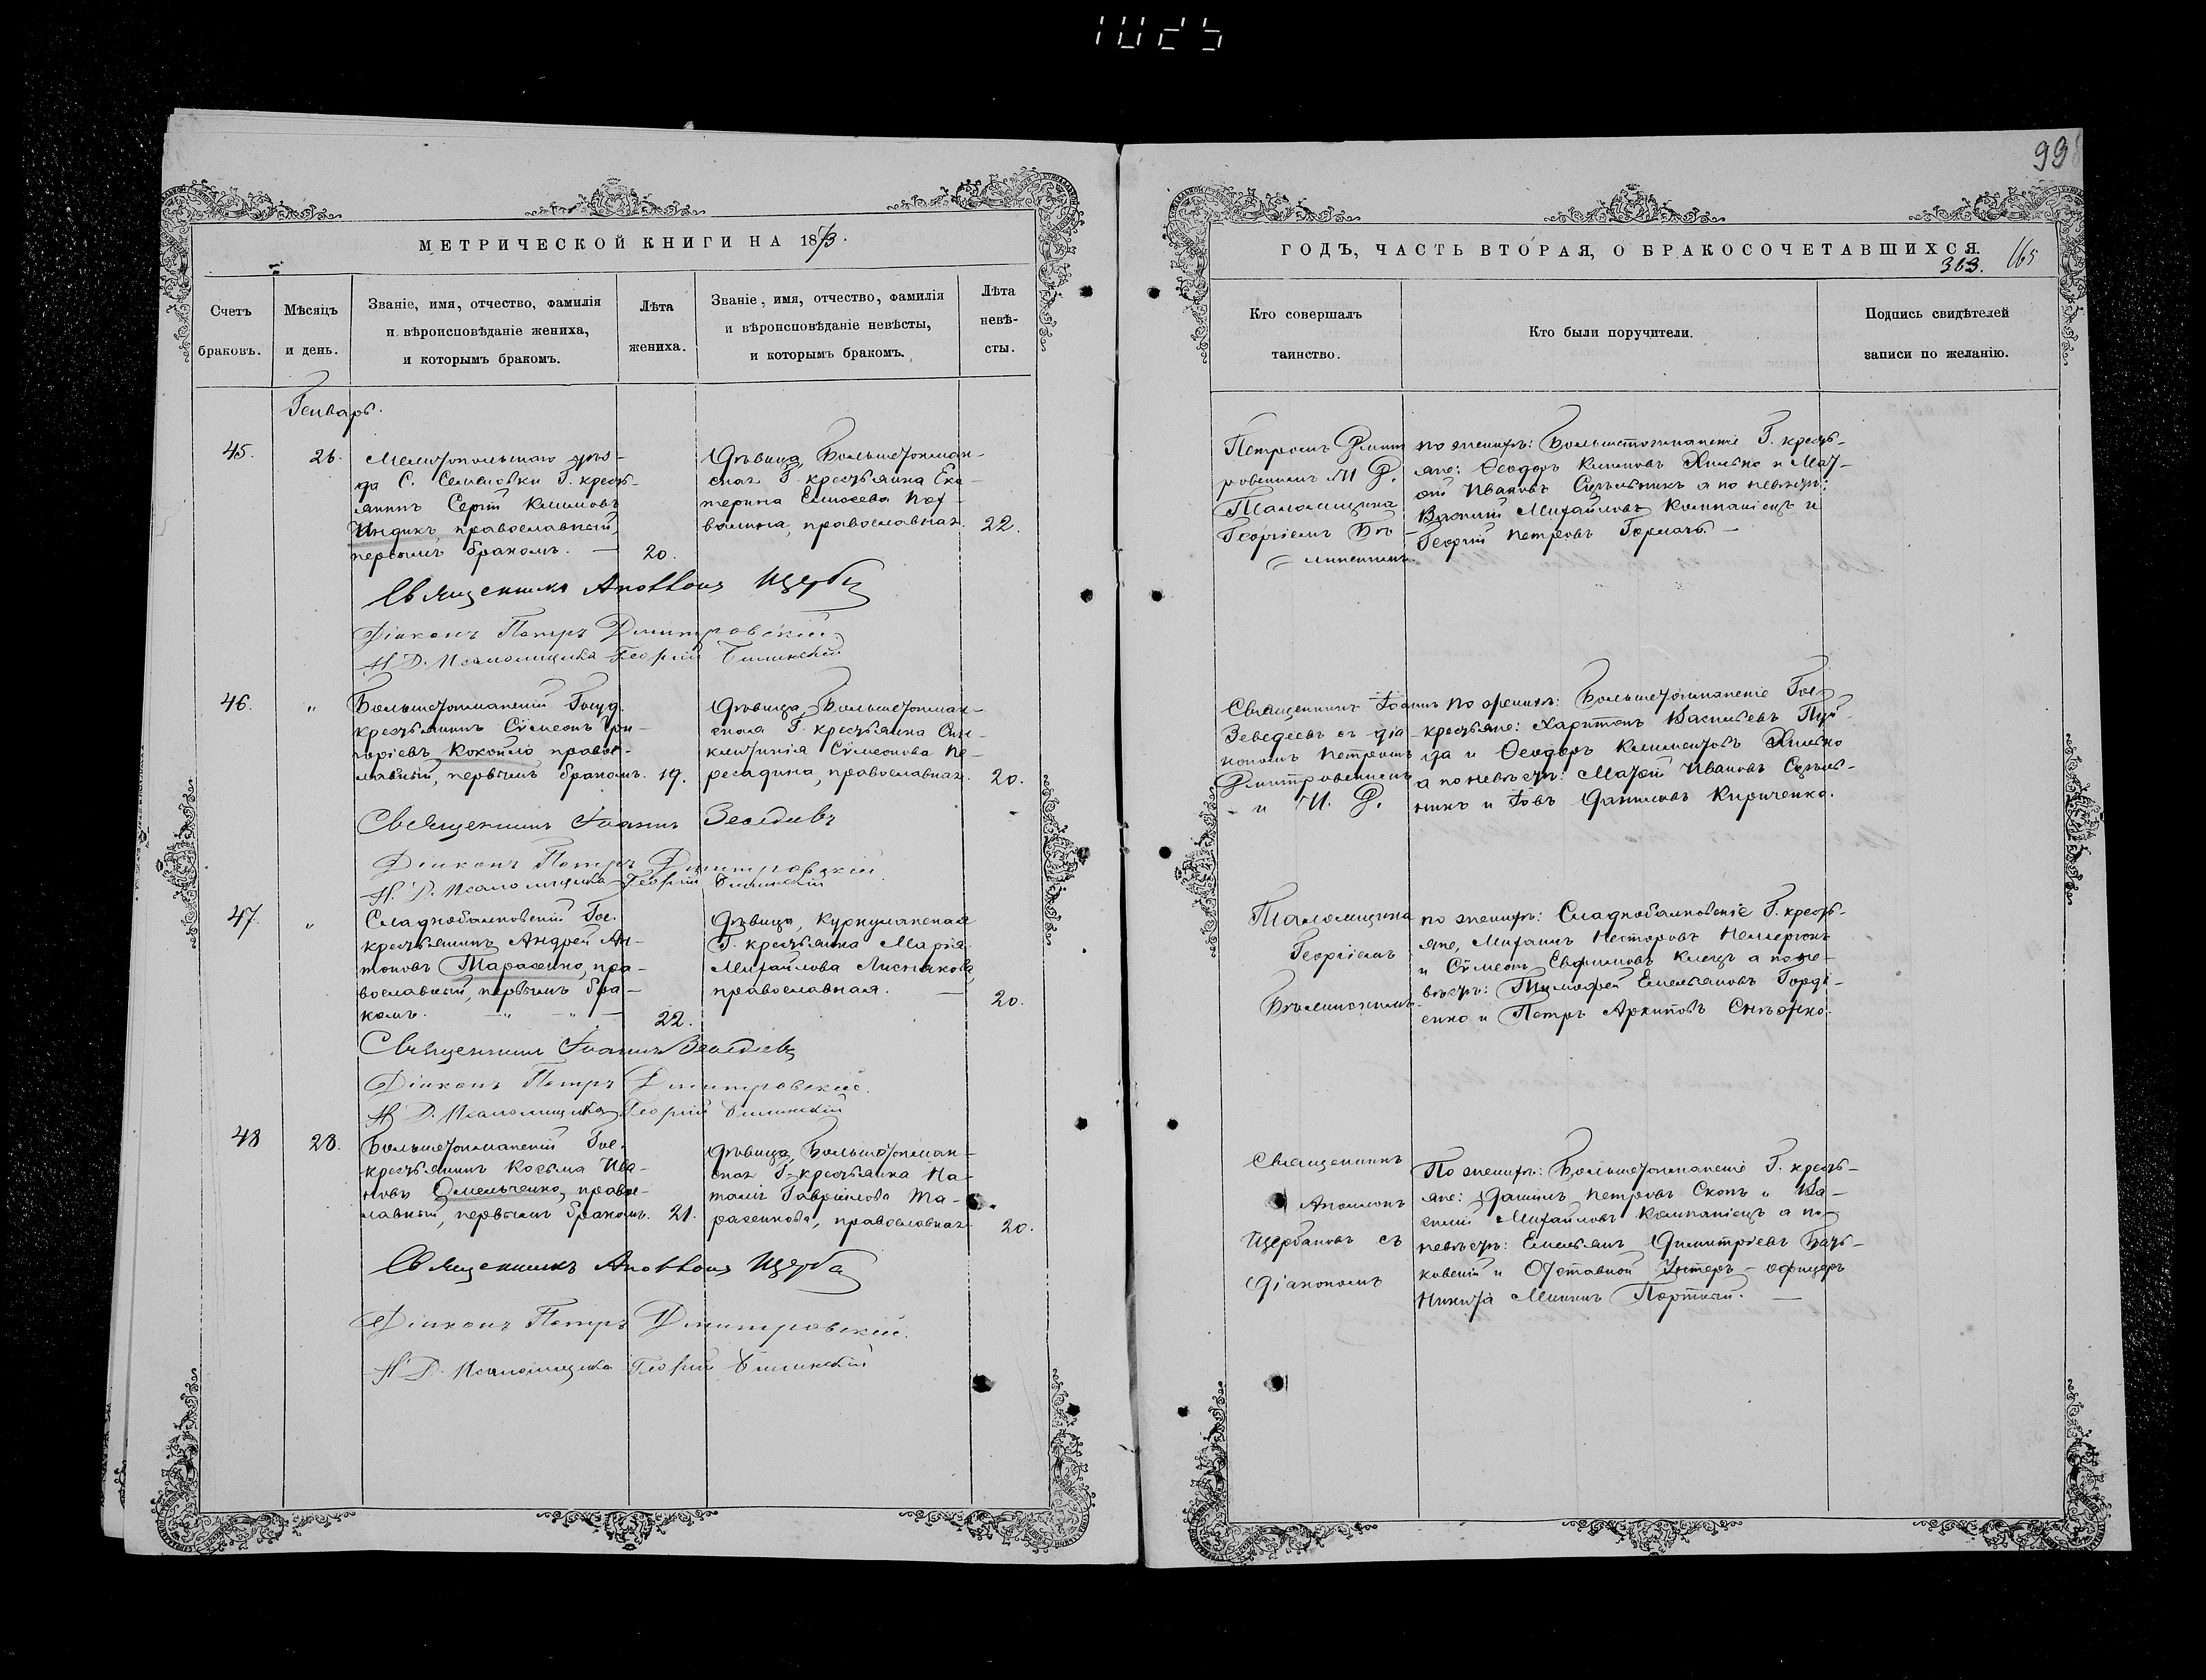 99
МЕТРИЧЕСКОЙ КНИГИ НА 1873.
Счетъ браковъ.
Мѣсяцъ и день.
Званіе, имя, отчество, фамилія
и вѣроисповѣданіе жениха,
и которымъ бракомъ.
Лѣта
жениха.
Званіе, имя, отчество, фамилія
и вѣроисповѣданіе невѣсты,
и которымъ бракомъ.
Лѣта
невѣ-
сты.
Генварь.
45.
26.
Мелитопольскаго уѣз-
да С. Семеновки Г. кресть-
янинъ Сергій Климовъ
Индикъ, православный,
первымъ бракомъ. —
20.
Дѣвица, Большетокмак-
ская Г. крестьянка Ека-
терина Елисеева
православная.
22.
Священникъ Аполлонъ Щерба
Діаконъ Петръ Димитровскій
И. Д. Псаломщика Георгій
46.
"
Большетокмакскій Госуд.
крестьянинъ Сѵмеонъ Гри-
горіевъ Кокойло правос-
лавный, первымъ бракомъ.
19.
Дѣвица, Большетокмак-
ская Г. крестьянка Син-
клитикія Сѵмеонова Пе-
ресадина, православная.
20.
Священникъ Іоаннъ Зеведеевъ
Діаконъ Петръ Димитровскій
И. Д. Псаломщика Георгій
47.
"
Сладкобалковскій Гос.
крестьянинъ Андрей Ан-
тоновъ Тарасенко, пра-
вославный, первымъ бра-
комъ.
22.
Дѣвица, Куркулакская
Г. крестьянка Марія
Михайлова Лиснякова,
православная. —
20.
Священникъ Іоаннъ Зеведеевъ
Діаконъ Петръ Димитровскій.
И. Д. Псаломщика Георгій
48
28.
Большетокмакскій Гос.
крестьянинъ Косьма Ива-
новъ Омельченко, правос-
лавный, первымъ бракомъ.
21.
Дѣвица, Большетокмак-
ская Г. крестьянка На-
талія Гавріилова Та-
расенкова, православная.
20.
Священникъ Аполлонъ Щерба
Діаконъ Петръ Димитровскій.
И. Д. Псаломщика Георгій
ГОДЪ, ЧАСТЬ ВТОРАЯ, О БРАКОСОЧЕТАВШИХСЯ.
363.
165
Кто совершалъ
таинство.
Кто были поручители.
Подпись свидѣтелей
записи по желанію.
Петромъ Димит
ровскимъ И Д.
Псаломщика
Георгіемъ Бѣ-
линскимъ.
по женихѣ: Большетокмакскіе Г. кресть-
яне: Ѳеодоръ Климовъ Хилько и Мат-
ѳій Ивановъ а по невѣстѣ:
Василій Михайловъ Компаніецъ и
Георгій Петровъ —
Священникъ Іоаннъ
Зеведеевъ съ діа-
кономъ Петромъ
Димитровскимъ
и И. Д.
по женихѣ: Большетокмакскіе Гос.
крестьяне: Харитонъ Васильевъ
и Ѳеодоръ Климентовъ Хилько
а по невѣстѣ: Матѳій Ивановъ
и Іовъ Даниловъ Кириченко.
Псаломщика
Георгіемъ
Бѣлинскимъ.
по женихѣ: Сладкобалковскіе Г. кресть-
яне, Михаилъ Несторовъ
и Сѵмеонъ Евфимовъ а по не-
вѣстѣ: Тимофей Емельяновъ Горді-
енко и Петръ Архиповъ Снѣжко.
Священникъ
Аполлонъ
Щербаковъ съ
Діакономъ
По женихѣ: Большетокмакскіе Г. кресть-
яне: Даніилъ Петровъ Скопъ и Ва-
силій Михайловъ Компаніецъ а по
невѣстѣ: Емельянъ Димитріевъ
и Отставной Унтеръ-офицеръ
Никита Мининъ Портной. —